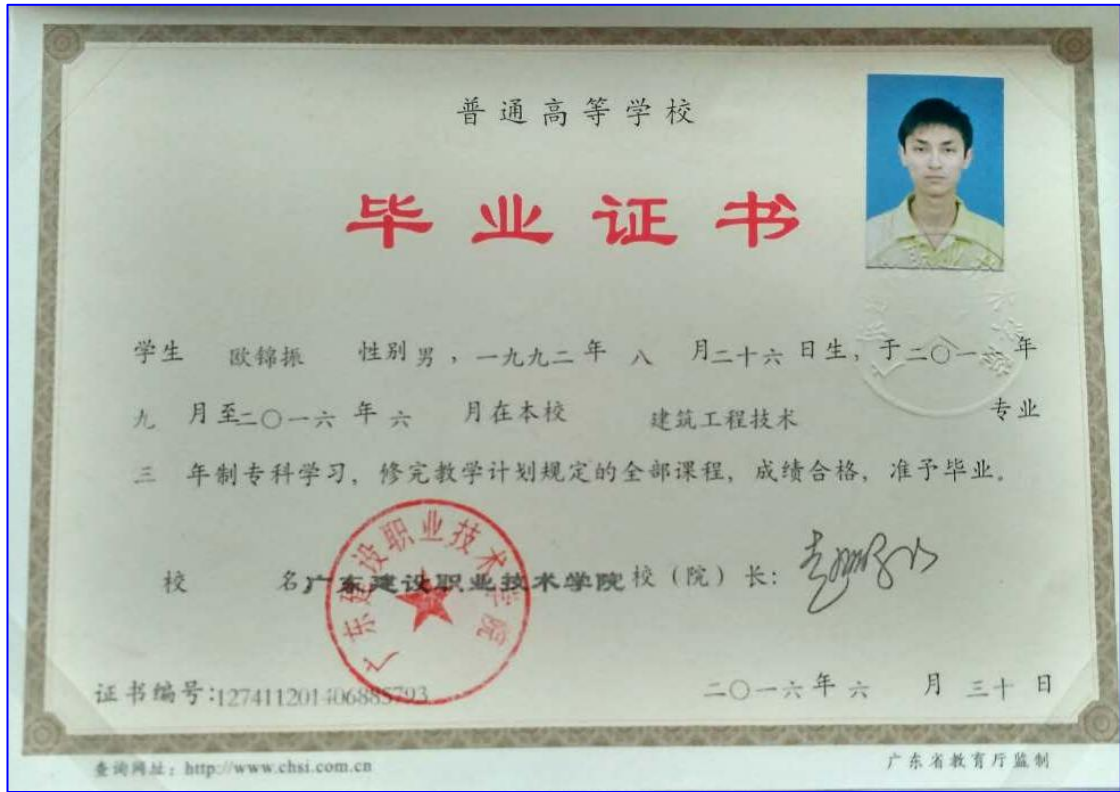 普通高等学校
毕业证书
学生 欧锦振 性别 男，一九九二 年 八 月 二十六 日生，于 二〇一一 年
九 月至 二〇一六 年 六 月在本校 建筑工程技术 专业
三 年制专科学习，修完教学计划规定的全部课程，成绩合格，准予毕业。
广东建设职业技术学院
校 名 广东建设职业技术学院 校（院）长：
证书编号：127411201406885793 二〇一六 年 六 月 三十 日
查询网址：http://www.chsi.com.cn 广东省教育厅监制